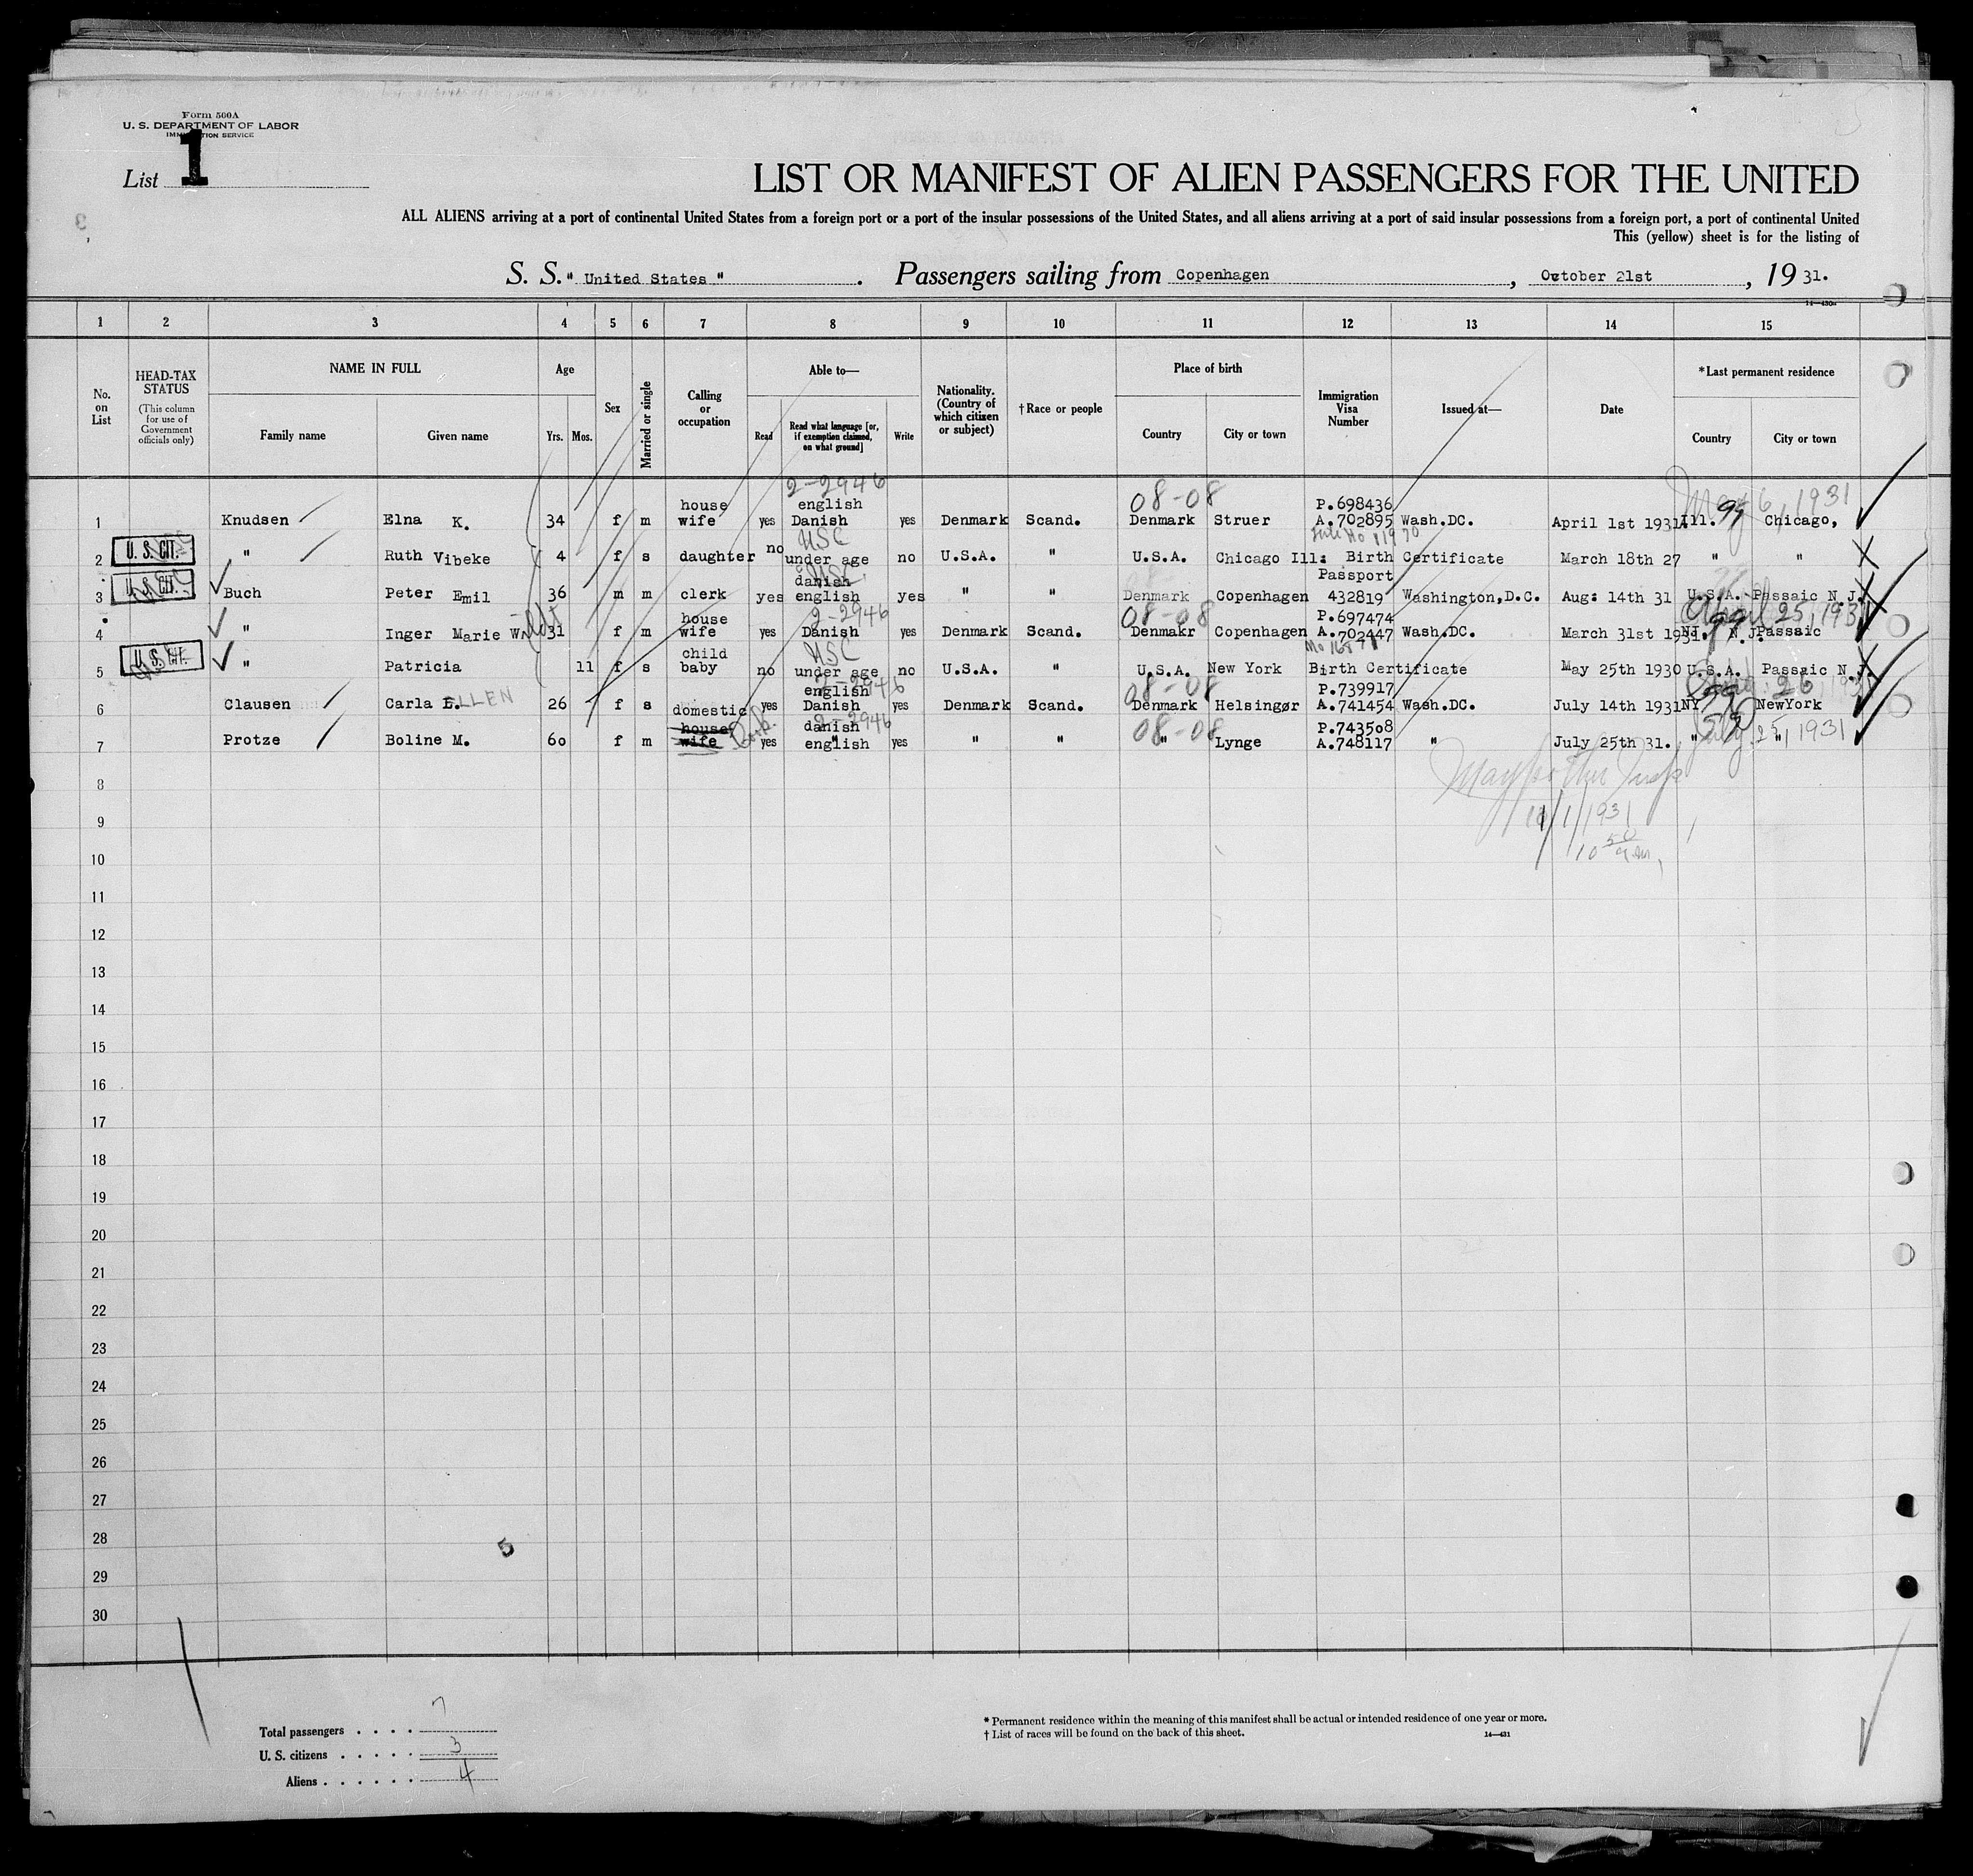 Form 500A
U. S. DEPARTMENT OF LABOR
IMMIGRATION SERVICE
List 1
LIST OR MANIFEST OF ALIEN PASSENGERS FOR THE UNITED
ALL ALIENS arriving at a port of continental United States from a foreign port or a port of the insular possessions of the United States, and all aliens arriving at a port of said insular possessions from a foreign port, a port of continental United
This (yellow) sheet is for the listing of
S. S. " United States " . Passengers sailing from Copenhagen , October 21st , 19 31.
14—430a
1 2 3 4 5 6 7 8 9 10 11 12 13 14 15
No. on List
HEAD-TAX STATUS
(This column for use of Government officials only)
NAME IN FULL
Family name Given name
Age
Yrs. Mos.
Sex
Married or single
Calling or occupation
Able to—
Read
Read what language [or, if exemption claimed, on what ground]
Write
Nationality. (Country of which citizen or subject)
† Race or people
Place of birth
Country City or town
Immigration Visa Number
Issued at—
Date
* Last permanent residence
Country City or town
2-2946 08-08 May 6, 1931
1 Knudsen Elna K. 34 f m house wife yes english Danish yes Denmark Scand. Denmark Struer P.698436 A.702895 Wash.DC. April 1st 1931 Ill. 99 Chicago,
USC
2 U. S. CIT. " Ruth Vibeke 4 f s daughter no under age no U.S.A. " U.S.A. Chicago Ill: Birth Certificate March 18th 27 " "
USC
3 U. S. CIT. Buch Peter Emil 36 m m clerk yes danish english yes " " Denmark Copenhagen Passport 432819 Washington,D.C. Aug: 14th 31 U.S.A. Passaic N.J.
2-2946 08-08 April 25, 1931
4 " Inger Marie W 31 f m house wife yes Danish yes Denmark Scand. Denmakr Copenhagen P.697474 A.702447 Wash.DC. March 31st 1931. NJ. 99 N.J. Passaic
USC
5 U. S. CIT. " Patricia 11 f s child baby no under age no U.S.A. " U.S.A. New York Birth Certificate May 25th 1930 U.S.A. Passaic N.J.
2-2946 08-08
6 Clausen Carla E. ELLEN 26 f s domestic yes english Danish yes Denmark Scand. Denmark Helsingør P.739917 A.741454 Wash.DC. July 14th 1931 NY NewYork
2-2946 08-08 25, 1931
7 Protze Boline M. 60 f m house wife yes danish english yes " " " Lynge P.743508 A.748117 " July 25th 31. " "
8
9
10
11
12
13
14
15
16
17
18
19
20
21
22
23
24
25
26
27
28
29
30
5
Total passengers . . . . 7
U. S. citizens . . . . . 3
Aliens . . . . . . 4
* Permanent residence within the meaning of this manifest shall be actual or intended residence of one year or more.
† List of races will be found on the back of this sheet.
14—431